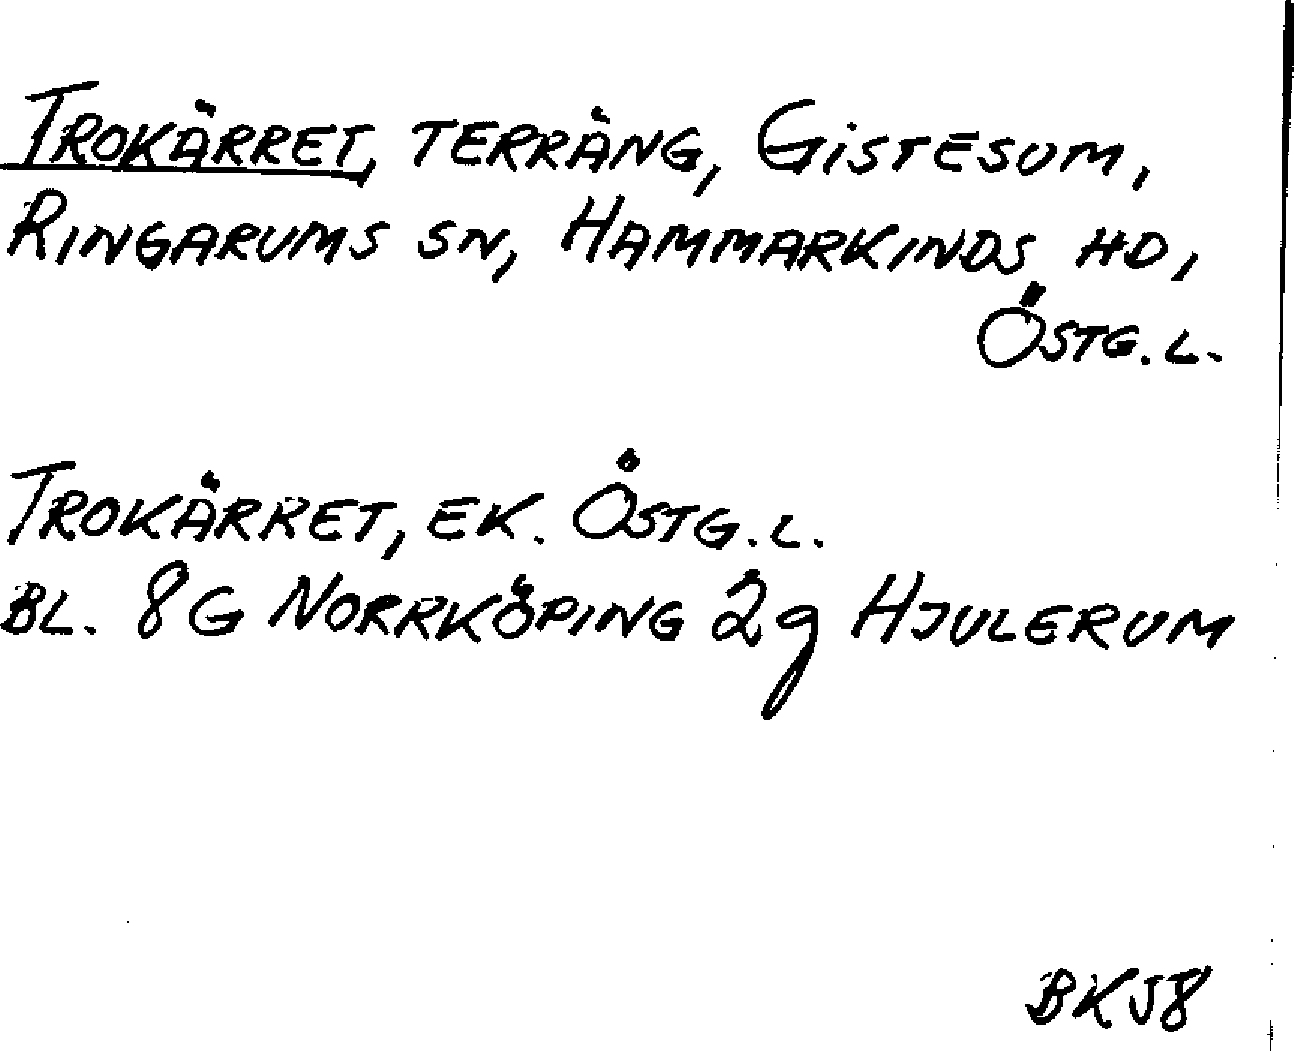 TROKÄRRET, TERRÄNG, GISTESUM,
RINGARUMS SN, HAMMARKINDS HD,
ÖSTG. L.
TROKÄRRET, EK. ÖSTG. L.
BL. 8G NORRKÖPING 2g HJULERUM
BK58